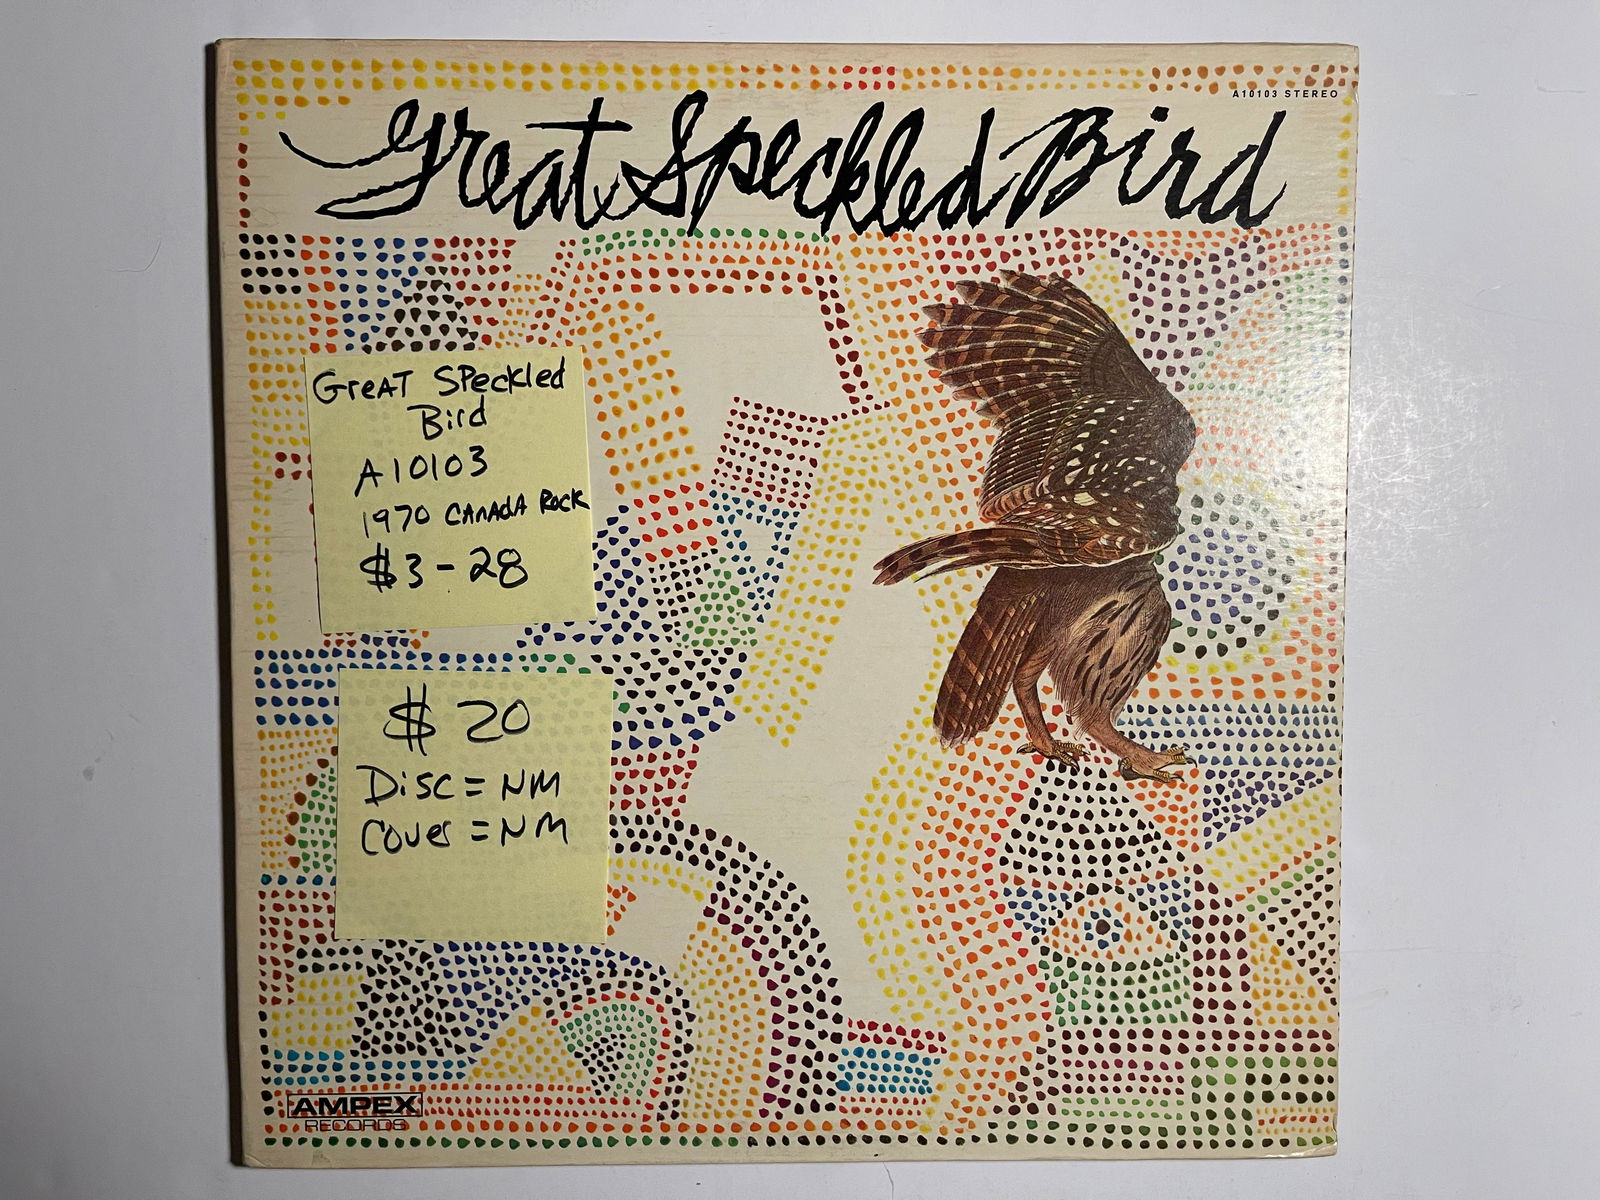 A10103 STEREO
Great Speckled Bird
GreAT SPeckled
Bird
A10103
1970 CANAdA Rock
$3-28
$20
Disc = NM
Cover = NM
AMPEX
RECORDS